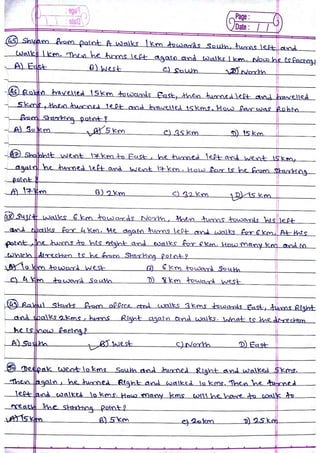 Page :
Date : / /
45) Shyam from point A walks 1km towards South, turns left and
walks 1km. Then he turns left again and walks 1km. Now he is facing?
A) East B) West C) South D) North
46) Robin travelled 15km towards East, then turned left and travelled
5kms, then turned left and travelled 15kms. How far was Robin
from starting point?
A) 30km B) 5km C) 35km D) 15km
47) Shobhit went 17km to East, he turned left and went 15km,
again he turned left and went 17km. How far is he from starting
point?
A) 17km B) 2km C) 32km D) 15km
48) Sujit walks 6km towards North, then turns towards his left
and walks for 4km. He again turns left and walks for 6km. At this
point, he turns to his right and walks for 6km. How many km and in
which direction is he from starting point?
A) 10km toward West B) 6km toward South
C) 4 km toward South D) 8km toward West
49) Rahul starts from office and walks 3kms towards East, turns Right
and walks 2kms, turns Right again and walks. What is the direction
he is now facing?
A) South B) West C) North D) East
50) Deepak went 10kms South and turned Right and walked 5kms.
Then again, he turned Right and walked 10kms. Then he turned
left and walked 10kms. How many kms will he have to walk to
reach the starting point?
A) 15km B) 5km C) 20km D) 25km